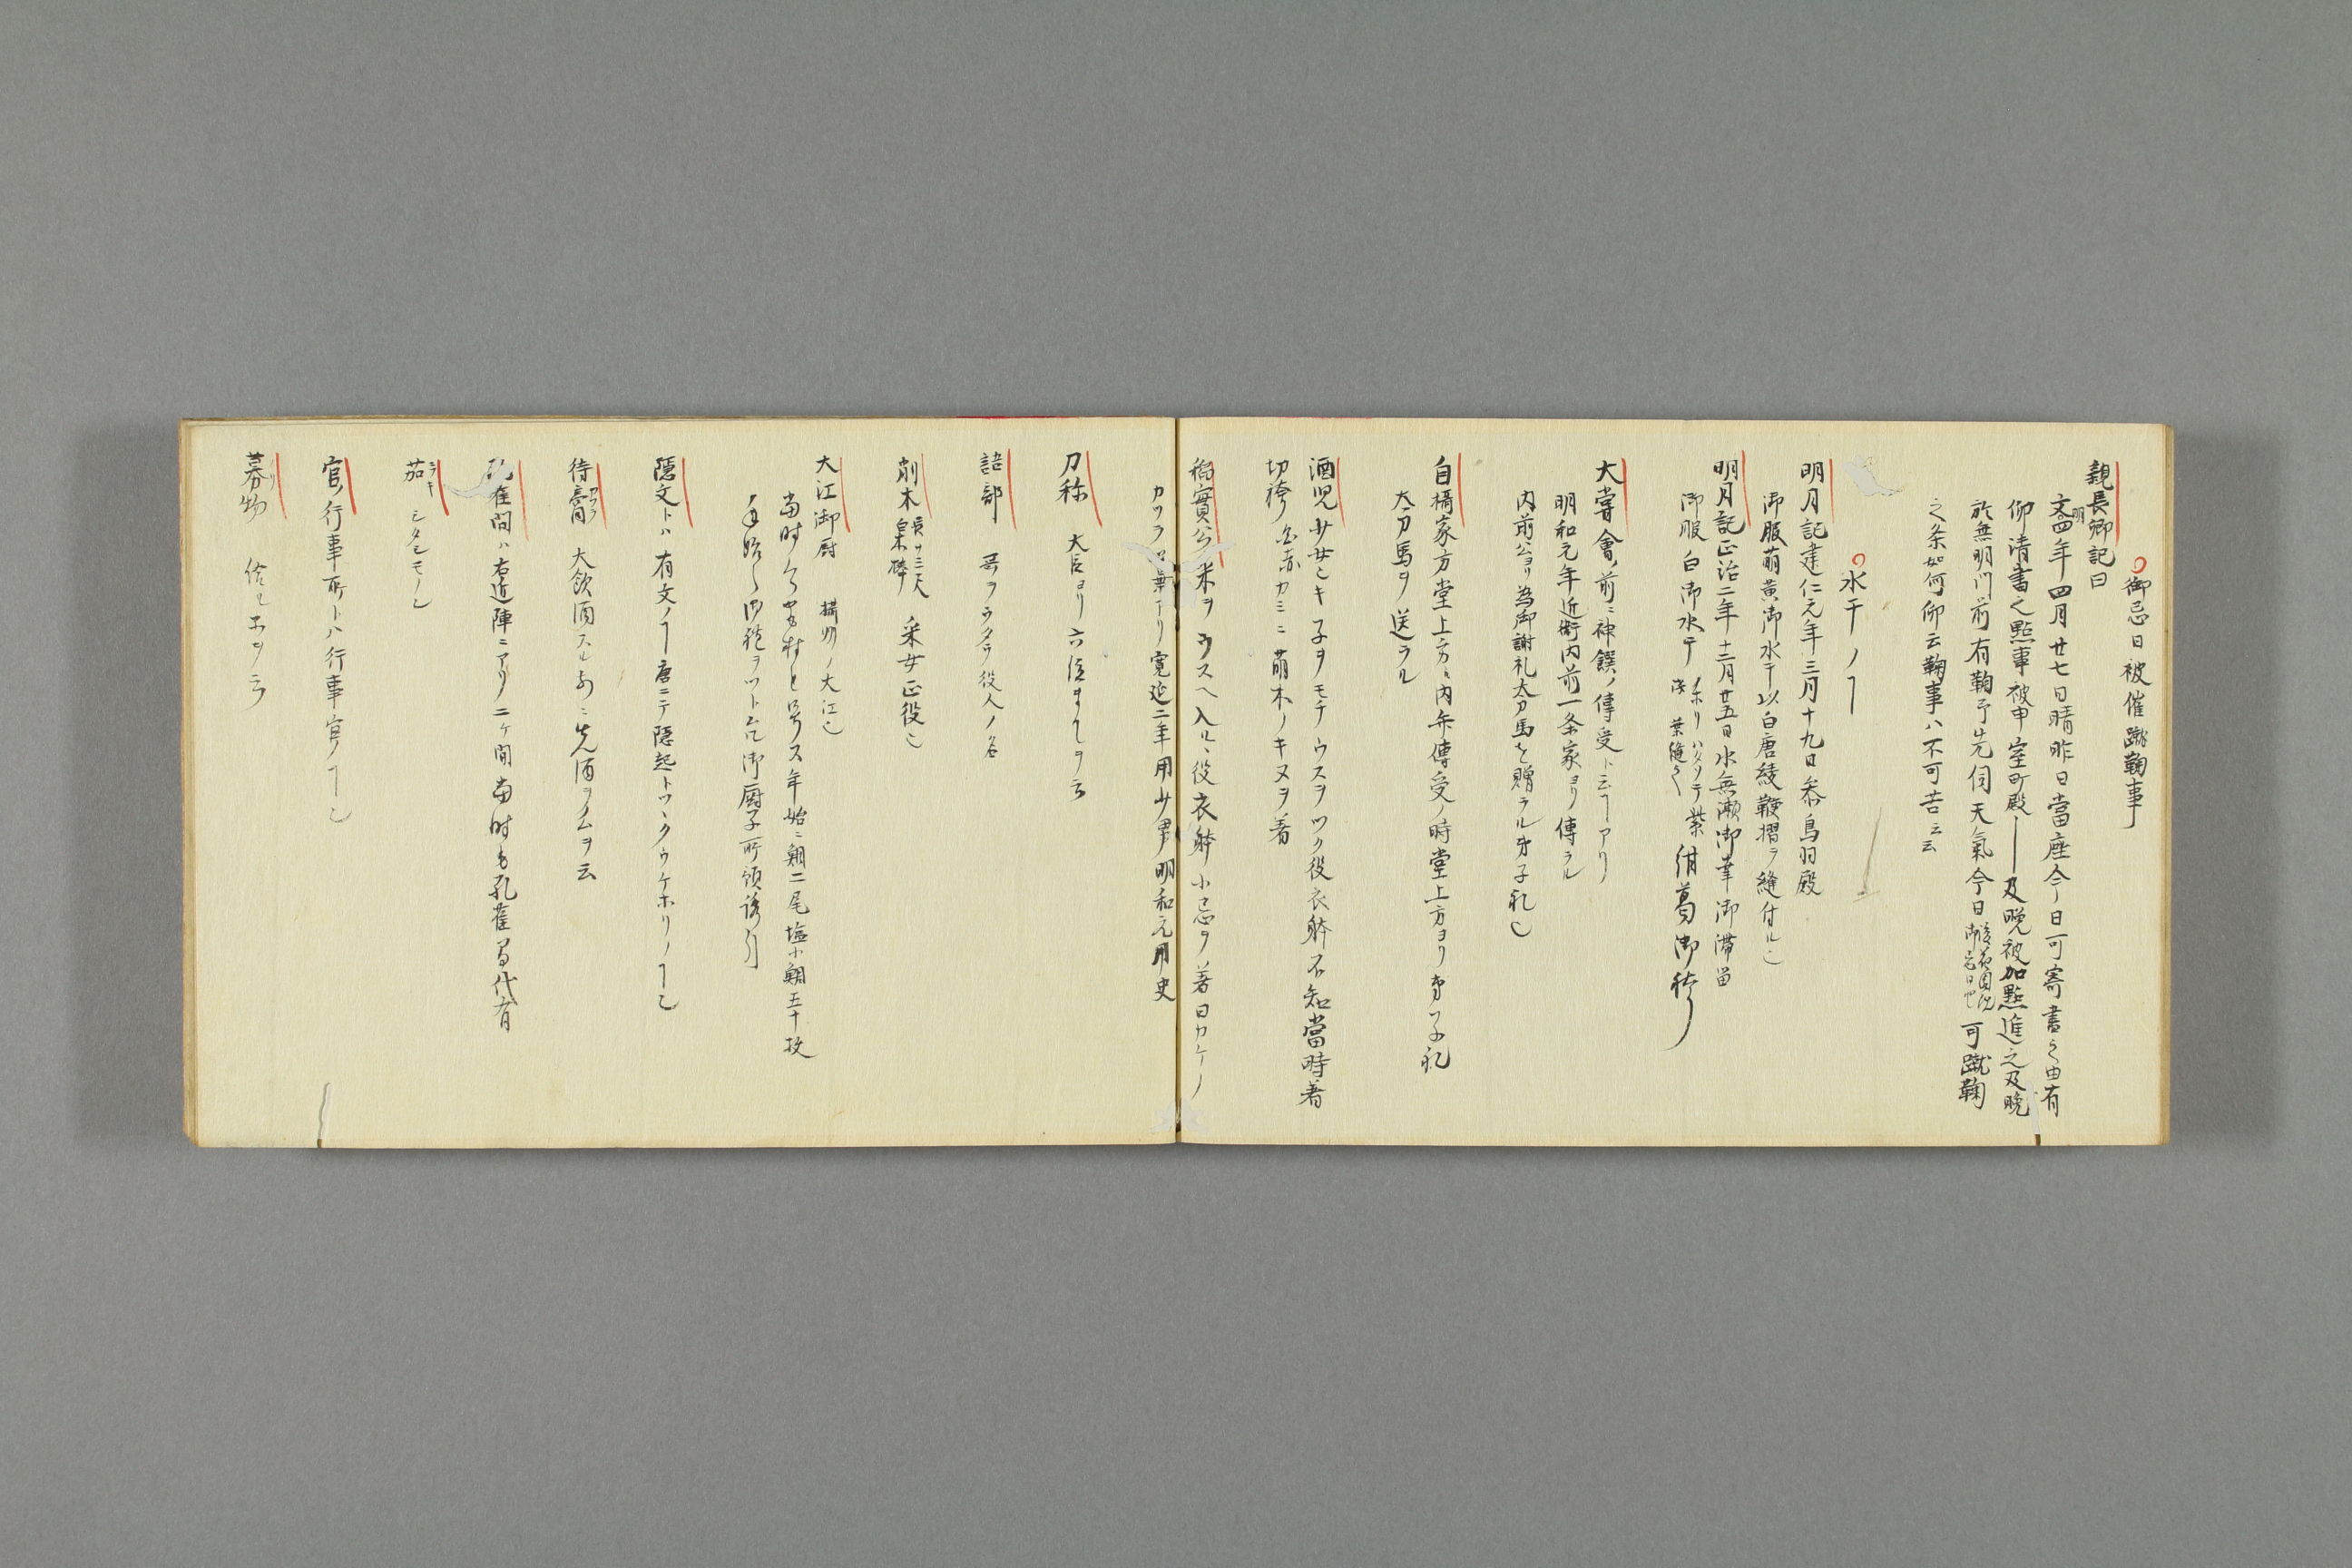 御忌日被催蹴鞠事
親長卿記曰
文明四年四月廿七日晴昨日當座今日可寄書之由有
仰清書之點事被申室町殿―及晩被加點進之及晩
於無明門前有鞠予先伺天氣今日後花園院御忌日也可蹴鞠
之条如何仰云鞠事ハ不可苦云云
水干ノヿ
明月記建仁元年三月十九日参鳥羽殿
御服萌黄御水干以白唐綾鞭摺ヲ縫付ル也
明月記正治二年十二月廿五日水無瀬御幸御滞留
御服白御水干 紫 紺葛御袴
大嘗會前ニ神饌ノ傳受ト云ヿアリ
明和元年近衛内前一条家ヨリ傳ラル
内前公ヨリ為御謝礼太刀馬を贈ラル弟子礼也
自橘家方堂上方ヘ内弁傳受ノ時堂上方ヨリ弟子礼
太刀馬ヲ送ラル
酒児 少女也キ子ヲモチウスヲツク役衣躰不知當時着
切袴 カミニ萌木ノキヌヲ着
稲實公 米ヲウスヘ入ル役衣躰小忌ヲ着日カケノ
カツラ アリ寛延二年用少男明和元用史
刀祢 大臣ヨリ六位まてヲ云
語部 哥ヲウタフ役人ノ名
削木 長サ三尺 采女正役也
大江御厨 摂州ノ大江也
當時 村と号ス年始ニ鯛二尾塩小鯛五十枚
御厨子所預
隠文トハ 有文ノヿ唐ニテ隠起トツヽクウケホリノヿ也
待膏 大飲酒スル前ニ先酒ヲノムヲ云
孔雀間ハ右近陣ニアリ二ケ間當時も孔雀間代有
茄 シタシモノ也
官行事所トハ行事官ノヿ也
募物